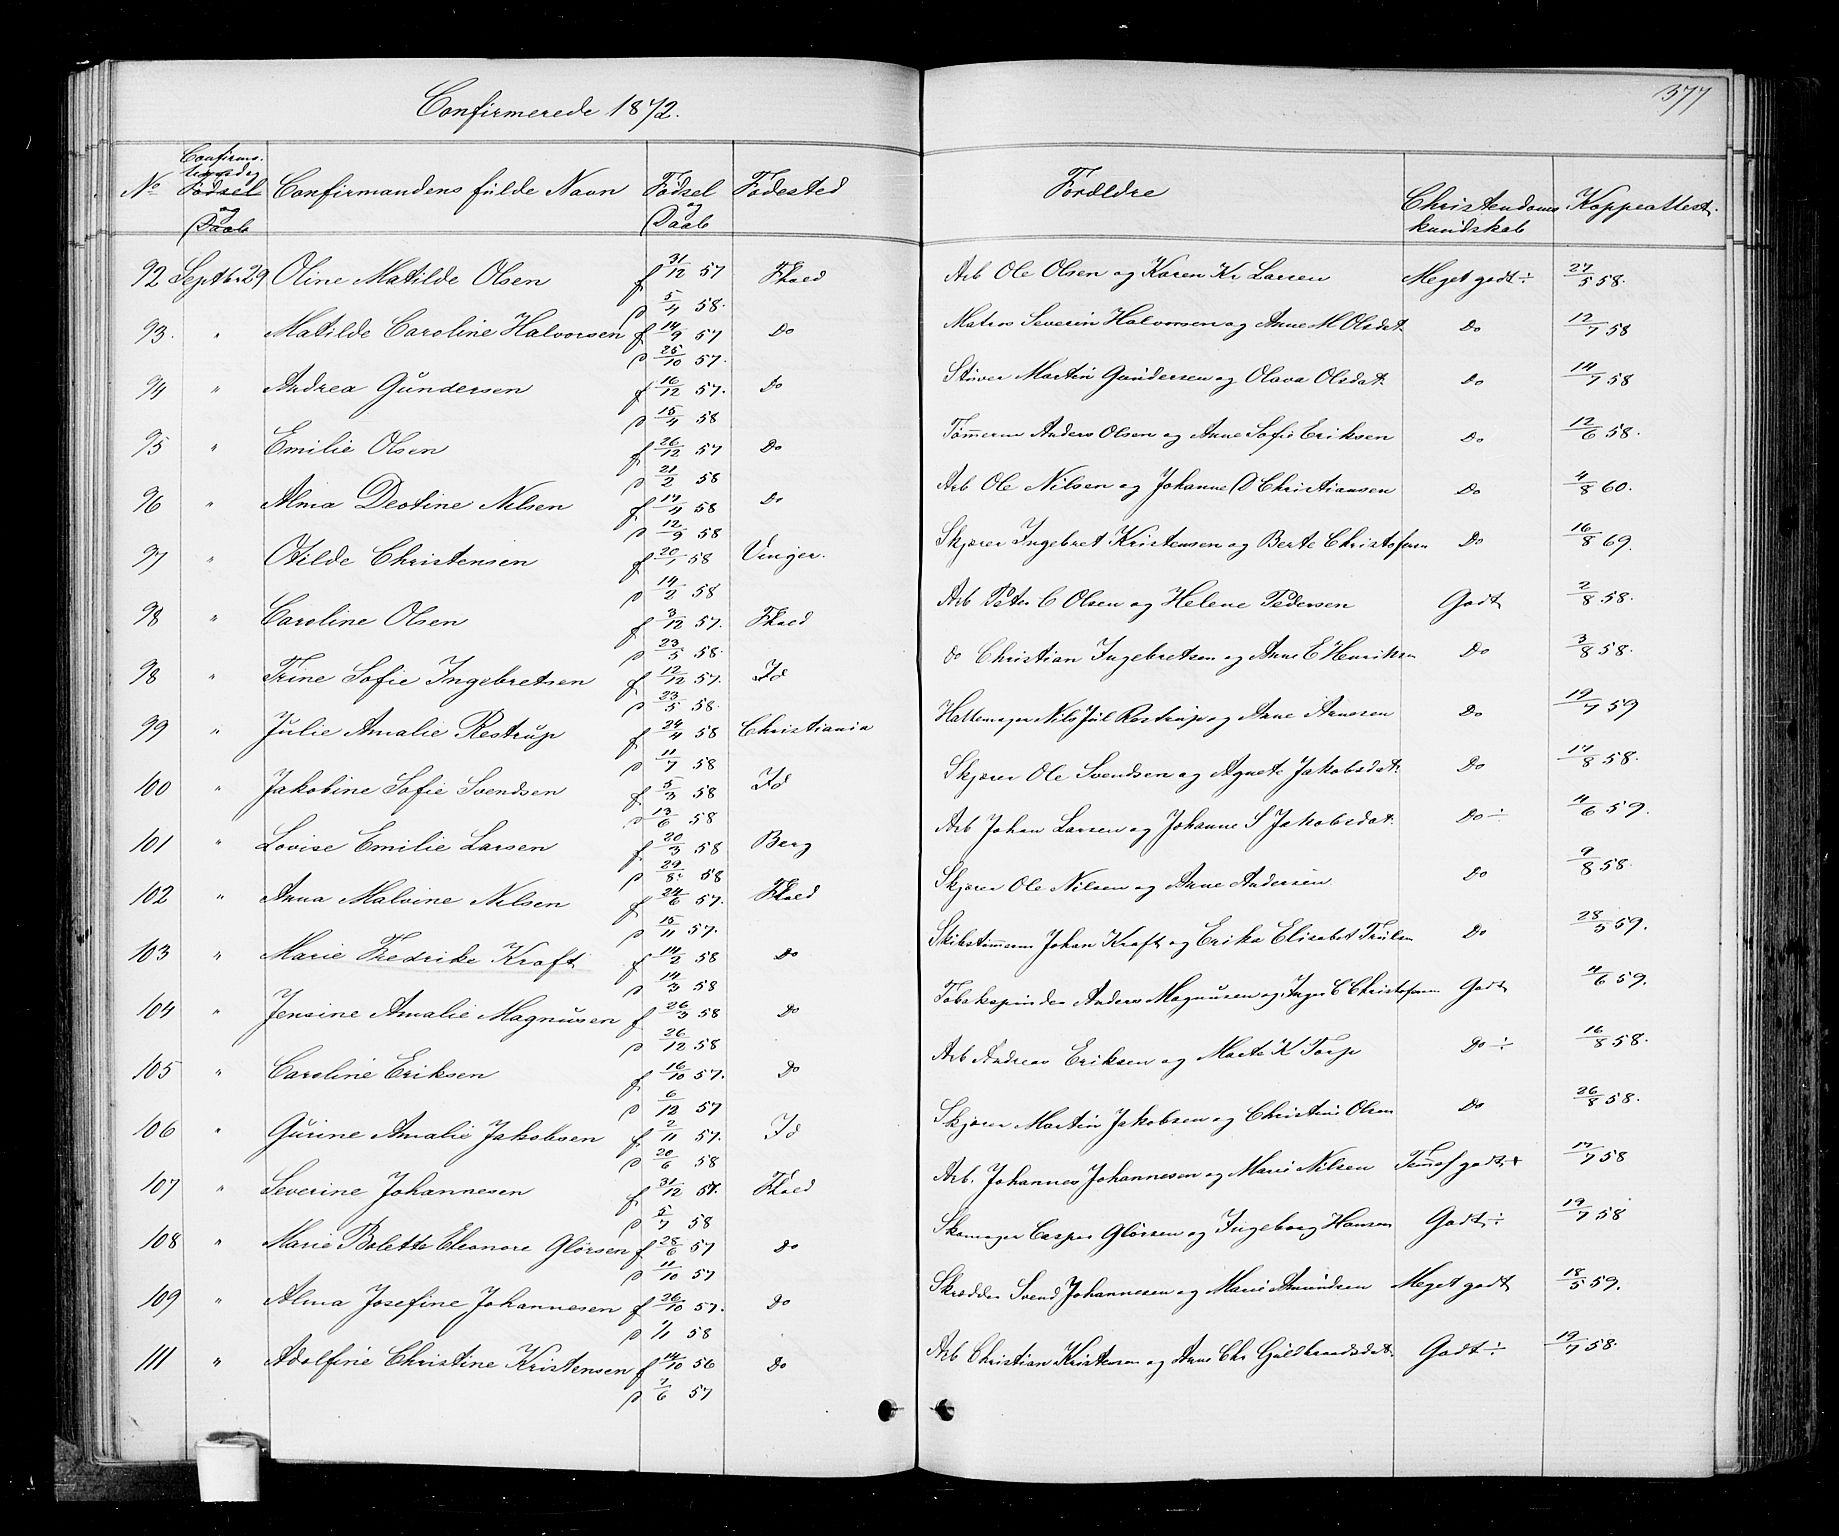 Confirmerede 1872.
377
No Confirmationsdag Fødsel og Daab Confirmandens fulde Navn Fødsel og Daab Fødested Forældre Christendoms kundskab Koppeattest.
92 Septbr 29 Oline Matilde Olsen f 31/12 57 Fhald Arb Ole Olsen og Karen Kr. Larsen Meget godt ÷ 27/5 58.
D 5/4 58.
93. " Matilde Caroline Halvorsen f 14/9 57 Do Matros Severin Halvorsen og Anne M Olsdat. Do 12/7 58
D 25/10 57.
94 " Andrea Gundersen f 16/12 57. Do Støver Martin Gundersen og Olava Olsdat. Do 14/7 58
D 15/4 58
95 " Emilie Olsen f 26/12 57 Do Tømmerm Anders Olsen og Anne Sofie Eriksen Do 12/6 58.
D 21/2 58
96 " Alma Deotine Nilsen f 17/4 58 Do Arb Ole Nilsen og Johanne D Christiansen Do 4/8 60.
D 12/9 58
97 " Otilde Christensen f 20/1 58 Vinger. Skjærer Ingebret Kristensen og Berte Christofersen Do 16/8 69.
D 14/2 58
98 " Caroline Olsen f 3/12 57. Fhald Arb Peter C Olsen og Helene Pedersen Godt 2/8 58.
D 23/5 58.
98 " Trine Sofie Ingebretsen f 12/12 57. Id do Christian Ingebretsen og Anne E Henriksen Do 3/8 58.
D 23/5 58.
99 " Julie Amalie Rostrup f 24/4 58 Christiania Hattemager Nils Jul Rostrup og Anne Arnesen Do 19/7 59
D 11/7 58
100 " Jakobine Sofie Svendsen f 5/3 58 Id Skjærer Ole Svendsen og Agnete Jakobsdat. Do 17/8 58.
D 13/6 58
101 " Lovise Emilie Larsen f 20/3 58 Berg Arb Johan Larsen og Johanne S Jakobsdat. Do ÷ 4/6 59.
D 29/8 58
102 " Anna Malvine Nilsen f 24/6 57. Fhald Skjærer Ole Nilsen og Anne Andersen Do 9/8 58.
D 15/11 57.
103 " Marie Fredrike Kraft f 14/2 58 Do Skibstømmerm Johan Kraft og Erika Elisabet Trulsen Do 28/5 59.
D 14/3 58
104 " Jensine Amalie Magnusen f 26/3 58 Do Tobakspinder Anders Magnusen og Inger C Christofersen Godt 4/6 59.
D 26/12 58
105 " Caroline Eriksen f 16/10 57. Do Arb Andreas Eriksen og Marte K Torp Do ÷ 16/8 58.
D 6/12 57
106 " Gurine Amalie Jakobsen f 2/11 57. Id Skjærer Martin Jakobsen og Christine Olsen Do 26/8 58.
D 20/6 58
107 " Severine Johannesen f 31/12 57. Fhald Arb. Johannes Johannesen og Marie Nilsen Temmel godt + 17/7 58
D 5/7 58
108 " Marie Bolette Eleonore Glørsen f 28/6 57 Do Skomager Casper Glørsen og Ingeborg Hansen Godt ÷ 19/7 58
D 11/10 57
109 " Alma Josefine Johannesen f 26/10 57. Do Skrædder Svend Johannesen og Marie Amundsen Meget godt 18/5 59.
D 1/1 58
111 " Adolfine Christine Kristensen f 14/10 56 Do Arb Christian Kristensen og Anne Chr Guldbrandsdat. Godt ÷ 19/7 58.
D 7/6 57